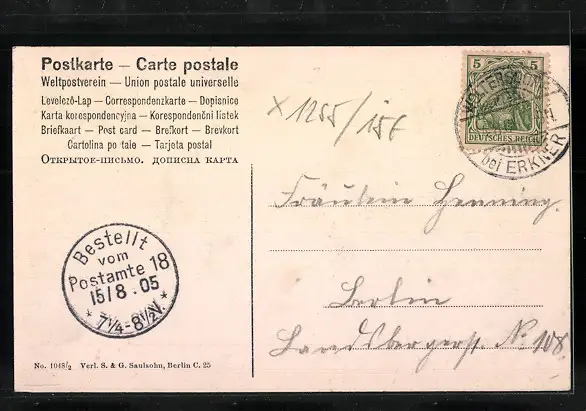 Postkarte — Carte postale
Weltpostverein — Union postale universelle
Levelező-Lap — Correspondenzkarte — Dopisnice
Karta korespondencyjna — Korespondenční lístek
Briefkaart — Post card — Brefkort — Brevkort
Cartolina postale — Tarjeta postal
ОТКРЫТОЕ-ПИСЬМО. ДОПИСНА КАРТА
x 1255/156
5 5
DEUTSCHES REICH
WOLTERSDORF
bei ERKNER
Fräulein Henning.
Berlin
Landsbergerst No 108
Bestellt
vom
Postamte 18
15/8.05
* 7¼-8½V. *
No. 1048/2 Verl. S. & G. Saulsohn, Berlin C. 25